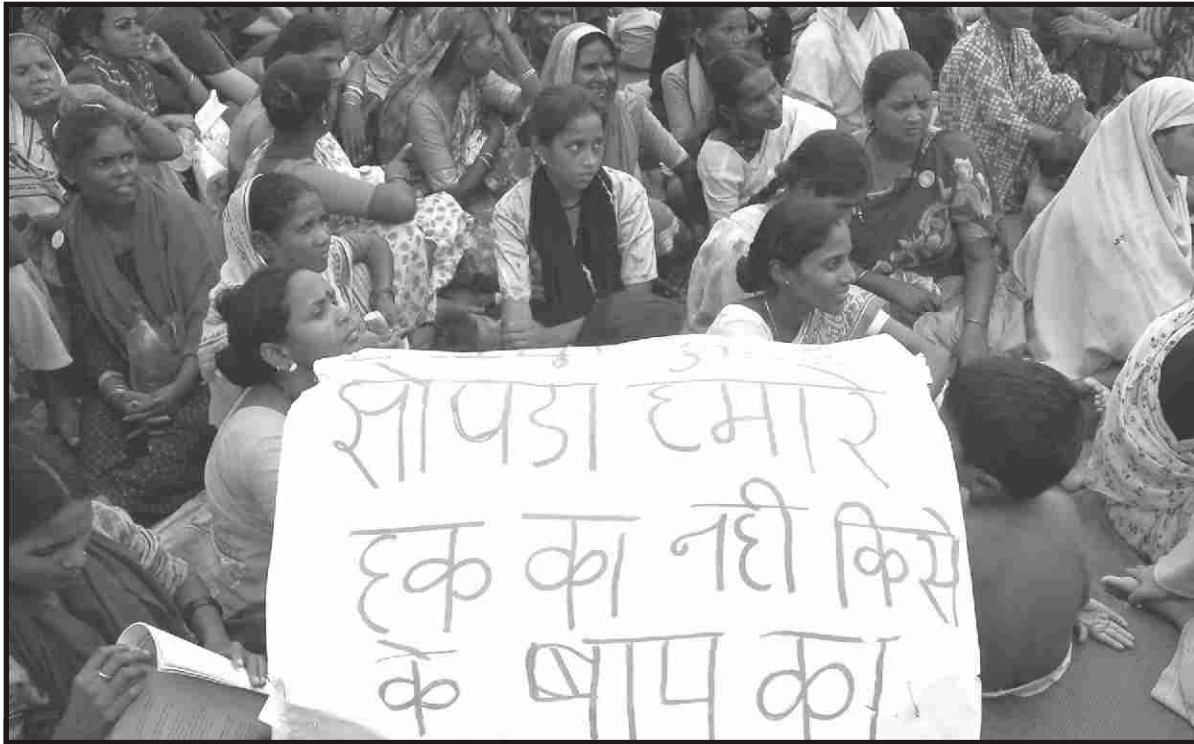 सोपडा हमारे
हक का नही किसे
के बाप का